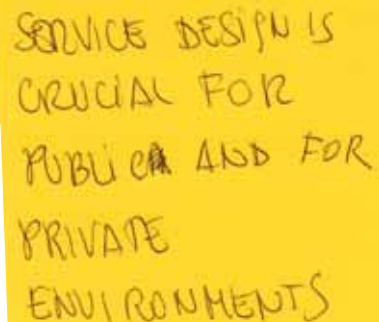 SERVICE DESIGN IS
CRUCIAL FOR
PUBLIC AND FOR
PRIVATE
ENVIRONMENTS